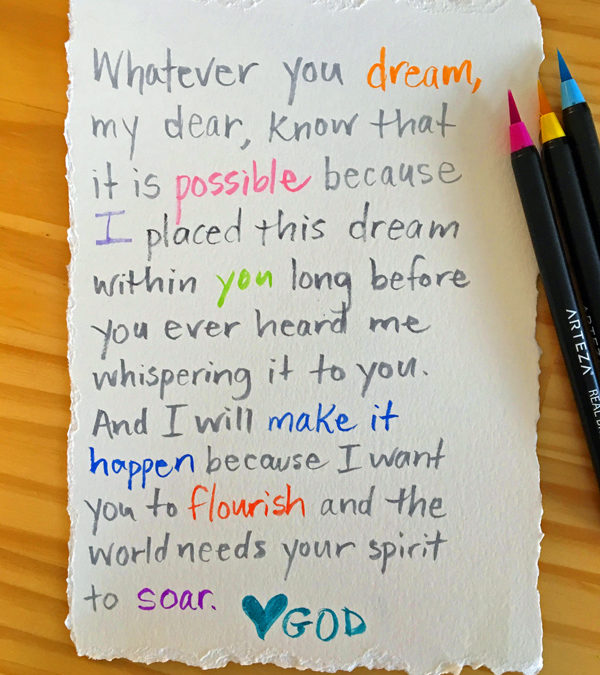 Whatever you dream,
my dear, know that
it is possible because
I placed this dream
within you long before
you ever heard me
whispering it to you.
And I will make it
happen because I want
you to flourish and the
world needs your spirit
to soar. ♥GOD
ARTEZA REAL
ARTEZA